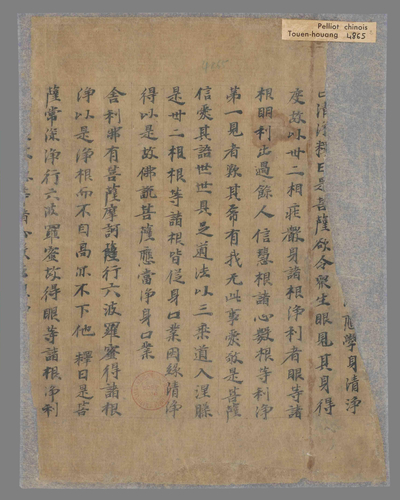 Pelliot chinois
Touen-houang 4865
應學身清淨
口清淨釋曰是菩薩欲令衆生眼見其身得
度故以卅二相庄嚴身諸根淨利者眼等諸
根明利出過餘人信慧根諸心數根等利淨
第一見者歎其希有我无此事愛敬是菩薩
信受其語世世具足道法以三乘道入涅槃
是卅二相根等諸根皆從身口業因緣清淨
得以是故佛説菩薩應當淨身口業
舍利弗有菩薩摩訶薩行六波羅蜜得諸根
淨以是淨根而不自高亦不下他 釋曰是菩
薩常深淨行六波羅蜜故得眼等諸根淨利